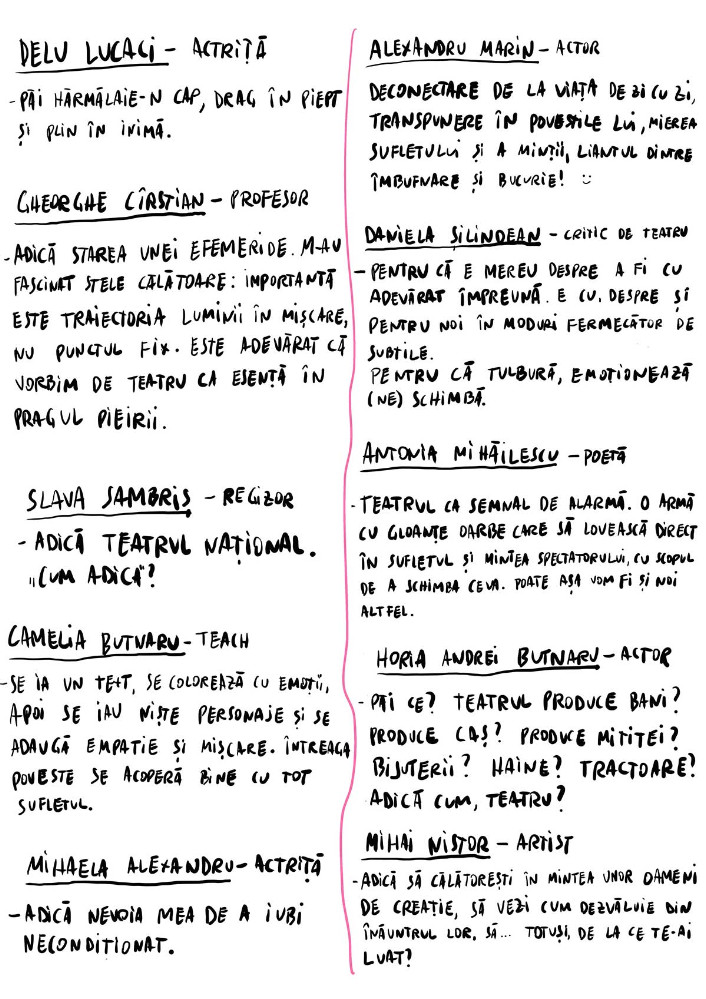 DELU LUCACI - ACTRIȚĂ
- PĂI HĂRMĂLAIE-N CAP, DRAG ÎN PIEPT
ȘI PLIN ÎN INIMĂ.
GHEORGHE CÎRSTIAN - PROFESOR
- ADICĂ STAREA UNEI EFEMERIDE. M-AU
FASCINAT STELE CĂLĂTOARE: IMPORTANTĂ
ESTE TRAIECTORIA LUMINII ÎN MIȘCARE,
NU PUNCTUL FIX. ESTE ADEVĂRAT CĂ
VORBIM DE TEATRU CA ESENȚĂ ÎN
PRAGUL PIEIRII.
SLAVA SAMBRIȘ - REGIZOR
- ADICĂ TEATRUL NAȚIONAL.
„CUM ADICĂ"?
CAMELIA BUTNARU - TEACH
- SE IA UN TEXT, SE COLOREAZĂ CU EMOȚII,
APOI SE IAU NIȘTE PERSONAJE ȘI SE
ADAUGĂ EMPATIE ȘI MIȘCARE. ÎNTREAGA
POVESTE SE ACOPERĂ BINE CU TOT
SUFLETUL.
MIHAELA ALEXANDRU - ACTRIȚĂ
- ADICĂ NEVOIA MEA DE A IUBI
NECONDIȚIONAT.
ALEXANDRU MARIN - ACTOR
DECONECTARE DE LA VIAȚA DE ZI CU ZI,
TRANSPUNERE ÎN POVEȘTILE LUI, MIEREA
SUFLETULUI ȘI A MINȚII, LIANTUL DINTRE
ÎMBUFNARE ȘI BUCURIE! :)
DANIELA ȘILINDEAN - CRITIC DE TEATRU
- PENTRU CĂ E MEREU DESPRE A FI CU
ADEVĂRAT ÎMPREUNĂ. E CU, DESPRE ȘI
PENTRU NOI ÎN MODURI FERMECĂTOR DE
SUBTILE.
PENTRU CĂ TULBURĂ, EMOȚIONEAZĂ
(NE) SCHIMBĂ.
ANTONIA MIHĂILESCU - POETĂ
- TEATRUL CA SEMNAL DE ALARMĂ. O ARMĂ
CU GLOANȚE OARBE CARE SĂ LOVEASCĂ DIRECT
ÎN SUFLETUL ȘI MINTEA SPECTATORULUI, CU SCOPUL
DE A SCHIMBA CEVA. POATE AȘA VOM FI ȘI NOI
ALTFEL.
HORIA ANDREI BUTNARU - ACTOR
- PĂI CE? TEATRUL PRODUCE BANI?
PRODUCE CAȘ? PRODUCE MITITEI?
BIJUTERII? HAINE? TRACTOARE?
ADICĂ CUM, TEATRU?
MIHAI NISTOR - ARTIST
- ADICĂ SĂ CĂLĂTOREȘTI ÎN MINTEA UNOR OAMENI
DE CREAȚIE, SĂ VEZI CUM DEZVĂLUIE DIN
ÎNĂUNTRUL LOR, SĂ... TOTUȘI, DE LA CE TE-AI
LUAT?